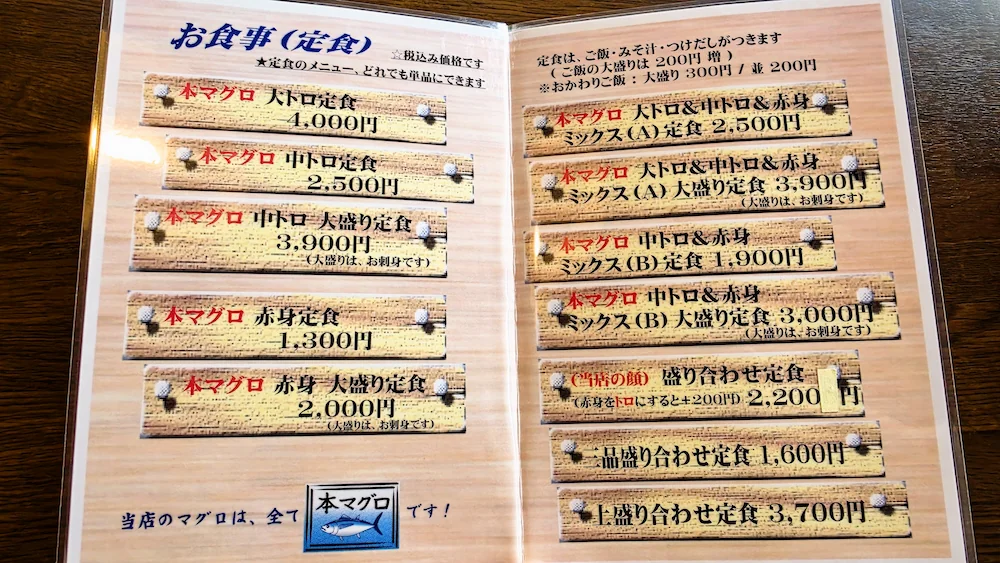 お食事(定食)
☆税込み価格です
★定食のメニュー、どれでも単品にできます
本マグロ 大トロ定食
4,000円
本マグロ 中トロ定食
2,500円
本マグロ 中トロ 大盛り定食
3,900円
(大盛りは、お刺身です)
本マグロ 赤身定食
1,300円
本マグロ 赤身 大盛り定食
2,000円
(大盛りは、お刺身です)
当店のマグロは、全て 本マグロ です!
定食は、ご飯・みそ汁・つけだしがつきます
(ご飯の大盛りは 200円 増)
※おかわりご飯:大盛り 300円 / 並 200円
本マグロ 大トロ&中トロ&赤身
ミックス(A)定食 2,500円
本マグロ 大トロ&中トロ&赤身
ミックス(A)大盛り定食 3,900円
(大盛りは、お刺身です)
本マグロ 中トロ&赤身
ミックス(B)定食 1,900円
本マグロ 中トロ&赤身
ミックス(B)大盛り定食 3,000円
(大盛りは、お刺身です)
(当店の顔) 盛り合わせ定食
(赤身をトロにすると+200円) 2,200円
二品盛り合わせ定食 1,600円
上盛り合わせ定食 3,700円